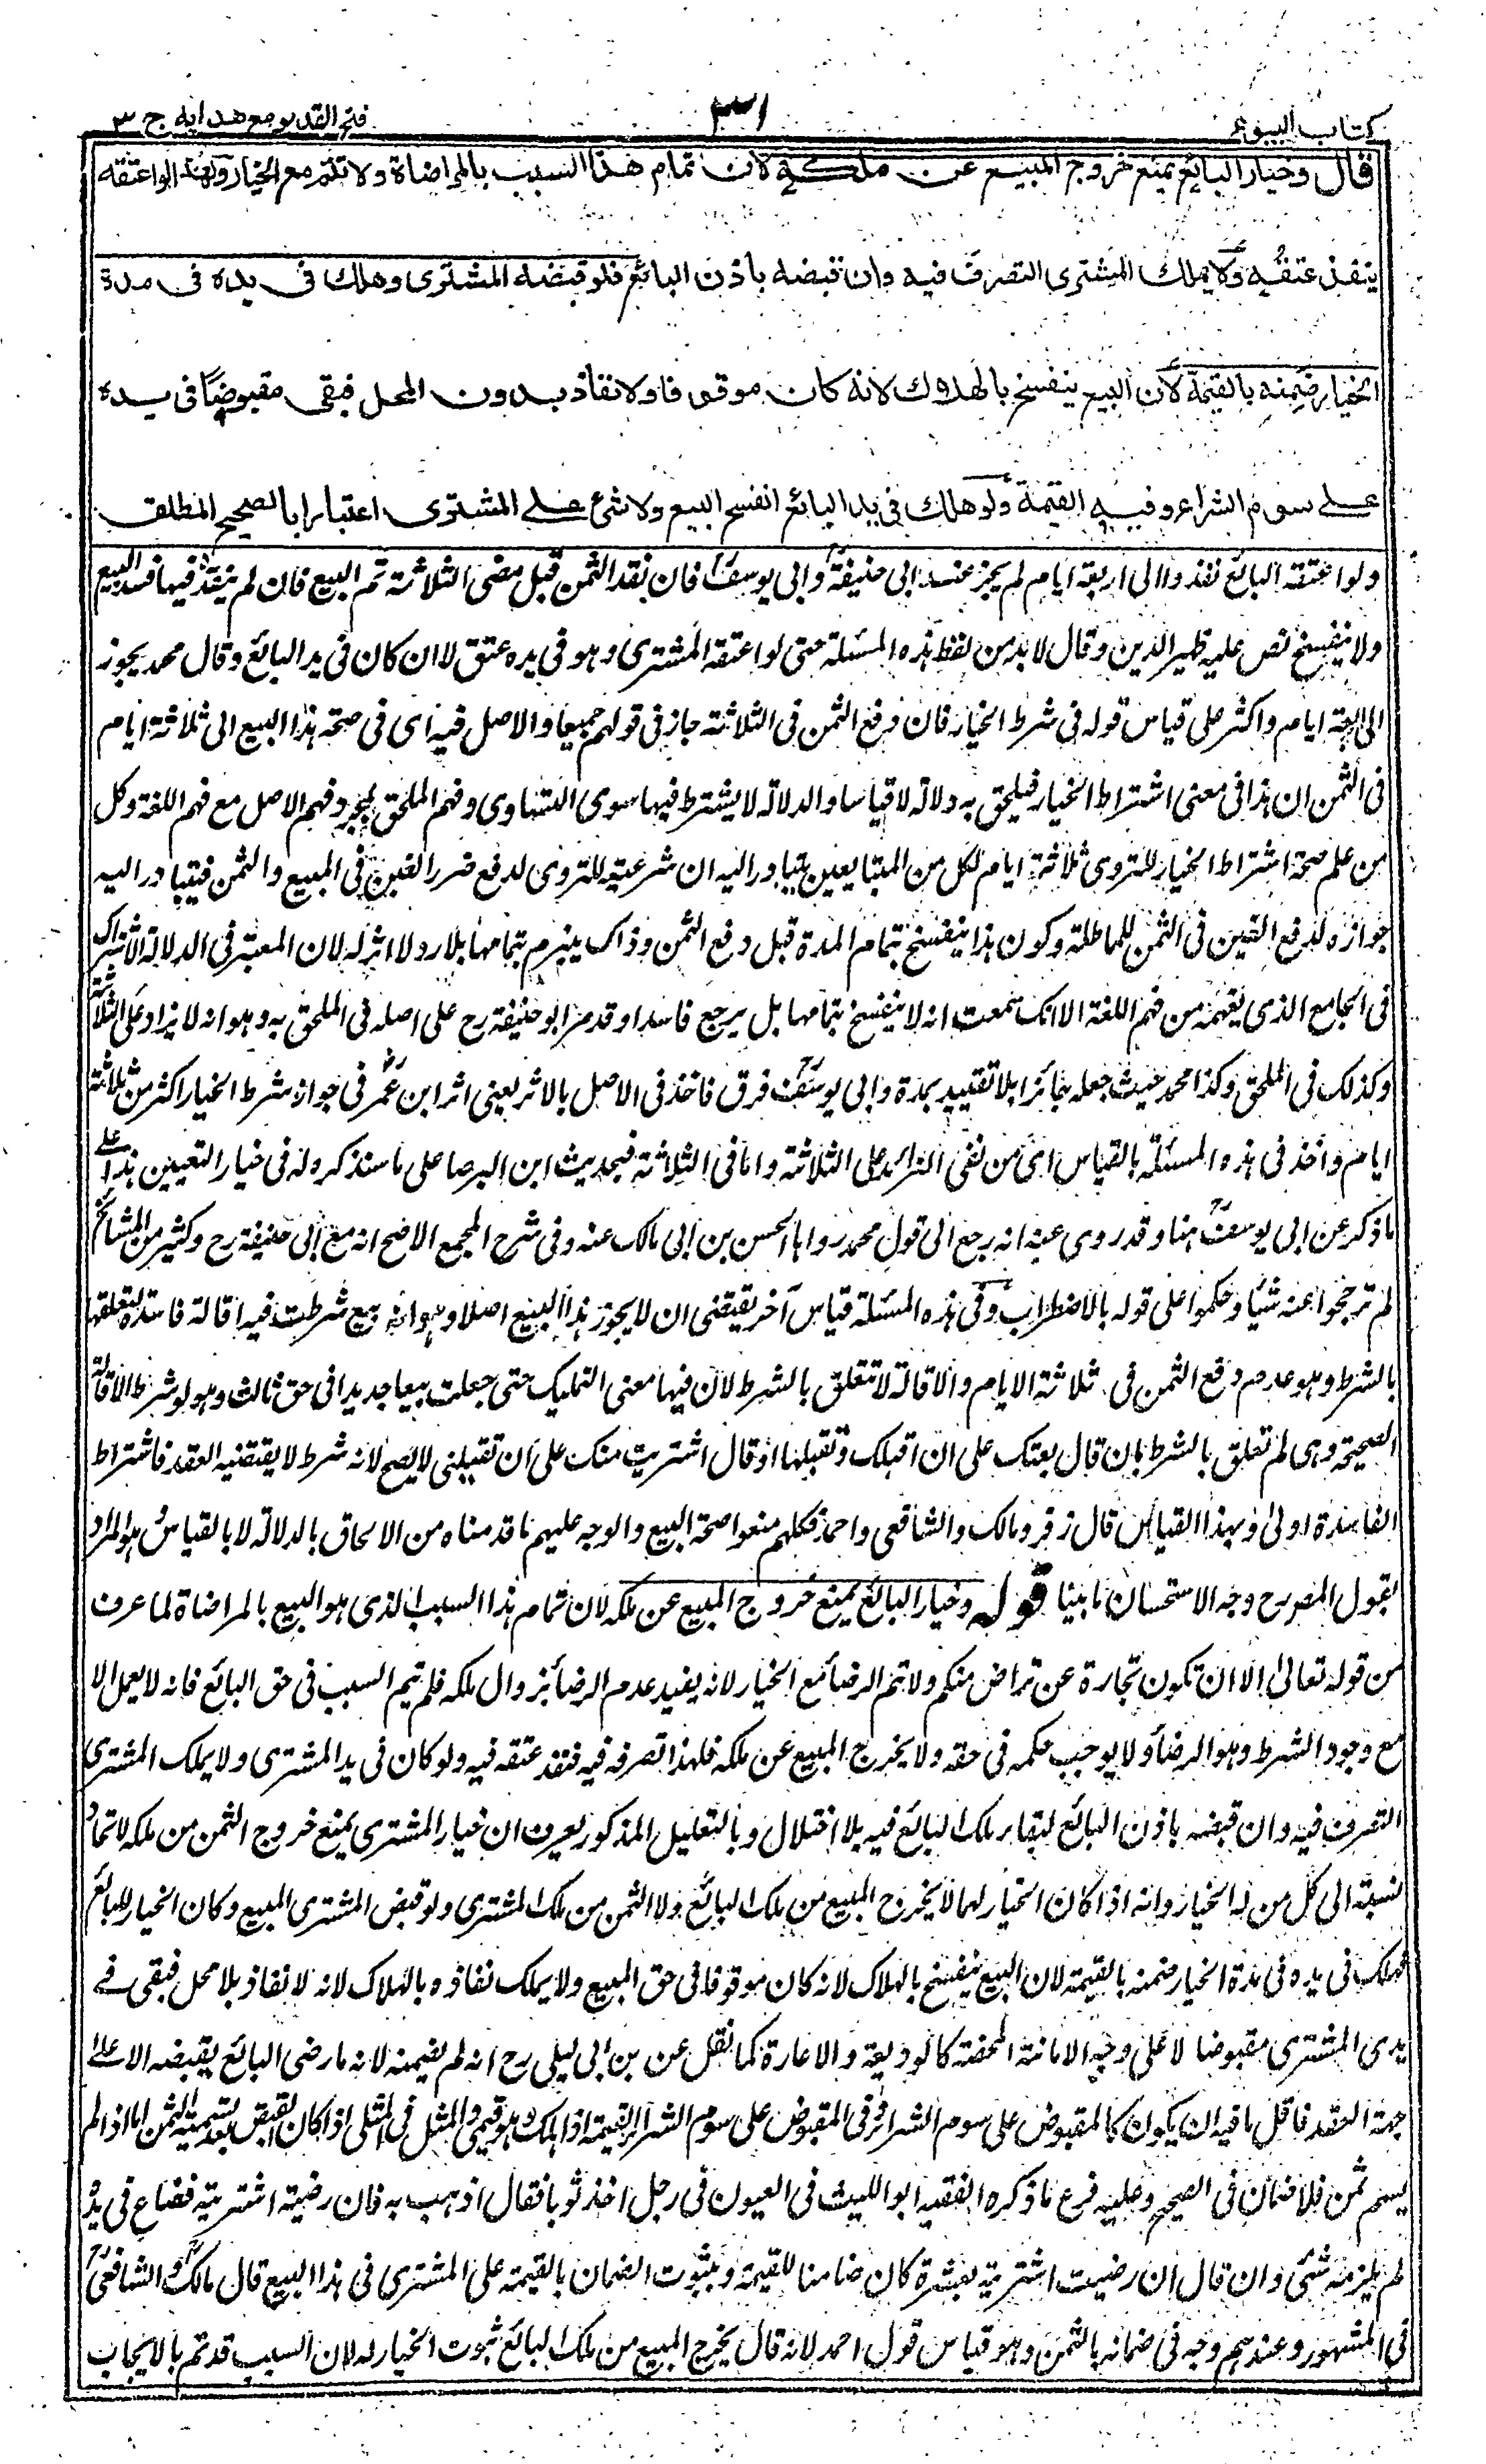 كتاب البيوع
٣١
فتح القدير مع هدايه ج ٣
قال وخيار البائع يمنع خروج المبيع عن ملكه لان تمام هذا السبب بالمراضاة ولا تتم مع الخيار ولهذا لو اعتقه
ينفذ عتقه ولا يملك المشترى التصرف فيه وان قبضه باذن البائع فلو قبضه المشترى وهلك فى يده فى مدة
الخيار ضمنه بالقيمة لان البيع ينفسخ بالهلاك لانه كان موقوفا ولا نفاذ بدون المحل فبقى مقبوضا فى يده
على سوم الشراء وفيه القيمة ولو هلك فى يد البائع انفسخ البيع ولا شئ على المشترى اعتبارا بالصحيح المطلق
ولو اعتقه البائع نفذ والى اربعة ايام لم يجز عند ابى حنيفة وابى يوسف فان نقد الثمن قبل مضى الثلاثة تم البيع فان لم ينقد فيها فسد البيع
ولا ينفسخ نص عليه ظهير الدين وقال لا بد من لفظ هذه المسئلة حتى لو اعتقه المشترى وهو فى يده عتق لا ان كان فى يد البائع وقال محمد يجوز
الى اربعة ايام واكثر على قياس قوله فى شرط الخيار فان دفع الثمن فى الثلاثة جاز فى قولهم جميعا والاصل فيه اى فى صحة هذا البيع الى ثلاثة ايام
فى الثمن ان هذا فى معنى اشتراط الخيار فيلحق به دلالة لا قياسا والدلالة لا يشترط فيها سوى التساوى وفهم الملحق بمجرد فهم الاصل مع فهم اللغة وكل
من علم صحة اشتراط الخيار للتروى ثلاثة ايام لكل من المتبايعين يتبادر اليه ان شرعيته للتروى لدفع ضرر الغبن فى المبيع والثمن فيتبادر اليه
جوازه لدفع الغبن فى الثمن للمماطلة وكون هذا ينفسخ بتمام المدة قبل دفع الثمن وذاك ينبرم بتمامها بلا رد لا اثر له لان المعتبر فى الدلالة الاشتراك
فى الجامع الذى يفهمه من فهم اللغة الا انك سمعت انه لا ينفسخ بتمامها بل يرجع فاسدا وقد مر ابو حنيفة رح على اصله فى الملحق به وهو انه لا يزاد على الثلاثة
وكذلك فى الملحق وكذا محمد حيث جعله جائزا بلا تقييد بمدة وابى يوسف فرق فاخذ فى الاصل بالاثر يعنى اثر ابن عمر فى جواز شرط الخيار اكثر من ثلاثة
ايام واخذ فى هذه المسئلة بالقياس اعنى من نفى الزائد على الثلاثة واما فى الثلاثة فبحديث ابن البرصا على ما سنذكر وله فى خيار التعيين هذا على
ما ذكر عن ابى يوسف هنا وقد روى عنه انه رجع الى قول محمد رواها الحسن بن ابى مالك عنه وفى شرح المجمع الاصح انه مع ابى حنيفة رح وكثير من المشائخ
لم ترجحوا عنه شيئا وحكموا على قوله بالاضطراب وفى هذه المسئلة قياس آخر يقتضى ان لا يجوز هذا البيع اصلا وهو انه بيع شرطت فيه اقالة فاسدة لتعلقها
بالشرط وهو عدم دفع الثمن فى ثلاثة الايام والاقالة لا تتعلق بالشرط لان فيها معنى التمليك حتى جعلت بيعا جديدا فى حق ثالث وهو لو شرط الاقالة
الصحيحة وهى لم تعلق بالشرط بان قال بعتك على ان اقيلك وتقبلها او قال اشتريت منك على ان تقيلنى لا يصح لانه شرط لا يقتضيه العقد فاشتراط
الفاسدة اولى وبهذا القياس قال زفر ومالك والشافعى واحمد فكلهم منعوا صحة البيع والوجه عليهم ما قدمناه من الالحاق بالدلالة لا بالقياس وهو المراد
بقول المص رح وجه الاستحسان ما بينا قوله وخيار البائع يمنع خروج المبيع عن ملكه لان تمام هذا السبب الذى هو البيع بالمراضاة لما عرف
من قوله تعالى الا ان تكون تجارة عن تراض منكم ولا تتم الرضا مع الخيار لانه يفيد عدم الرضا بزوال ملكه فلم يتم السبب فى حق البائع فانه لا يعمل الا
مع وجود الشرط وهو الرضا ولا يوجب حكمه فى حقه ولا يخرج المبيع عن ملكه فلهذا تصرفه فيه فنفذ عتقه فيه ولو كان فى يد المشترى ولا يملك المشترى
التصرف فيه وان قبضه باذن البائع لبقاء ملك البائع فيه بلا اختلال وبالتعليل المذكور يعرف ان خيار المشترى يمنع خروج الثمن من ملكه لاتحاد
نسبته الى كل من له الخيار وانه اذا كان الخيار لهما لا يخرج المبيع من ملك البائع ولا الثمن من ملك المشترى ولو قبض المشترى المبيع وكان الخيار للبائع
فهلك فى يده فى مدة الخيار ضمنه بالقيمة لان البيع ينفسخ بالهلاك لانه كان موقوفا فى حق المبيع ولا يملك نفاذه بالهلاك لانه لا نفاذ بلا محل فبقى فى
يدى المشترى مقبوضا لا على وجه الامانة المحضة كالوديعة والاعارة كما نقل عن بن ابى ليلى رح انه لم يضمنه لانه ما رضى البائع بقبضه الا على
جهة العقد فاقل ما فيه ان يكون كالمقبوض على سوم الشراء وفى المقبوض على سوم الشراء القيمة اذا هلك وهو قيمى والمثل فى المثلى اذا كان القبض بعد تسمية الثمن اما اذا لم
يسم ثمن فلا ضمان فى الصحيح وعليه فرع ما ذكره الفقيه ابو الليث فى العيون فى رجل اخذ ثوبا فقال اذهب به فان رضيته اشتريته فضاع فى يده
لم يلزمه شئ وان قال ان رضيت اشتريته بعشرة كان ضامنا للقيمة وبثبوت الضمان بالقيمة على المشترى فى هذا البيع قال مالك والشافعى
فى المشهور وعندهم وجه فى ضمانه بالثمن وهو قياس قول احمد لانه قال يخرج المبيع من ملك البائع ثبوت الخيار له لان السبب قد تم بالايجاب